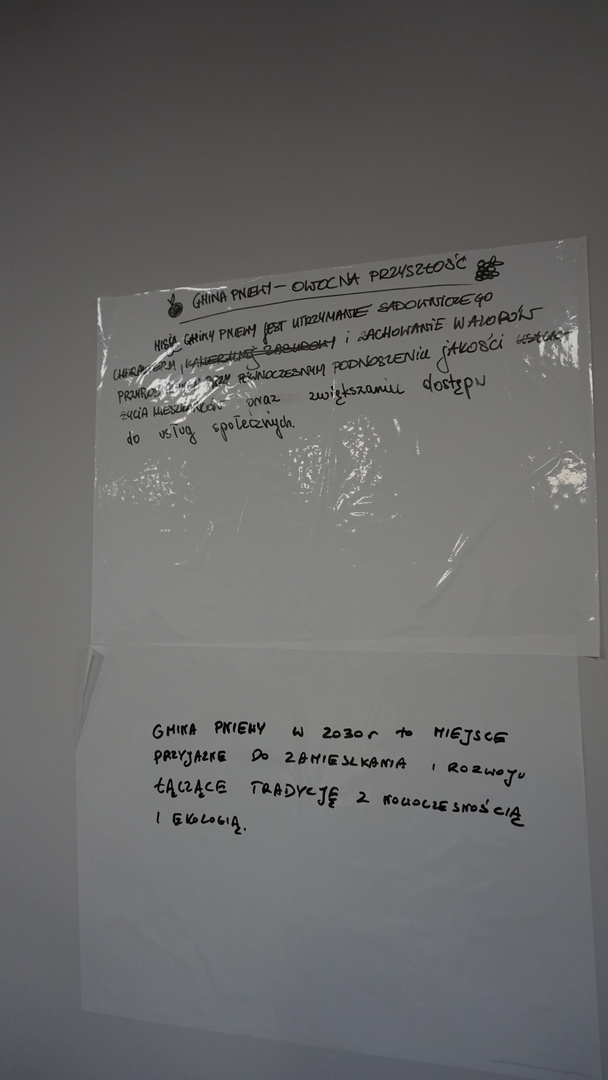 GMINA PNIEWY – OWOCNA PRZYSZŁOŚĆ
MISJĄ GMINY PNIEWY JEST UTRZYMANIE SADOWNICZEGO
CHARAKTERU I ZACHOWANIE WALORÓW
PRZY RÓWNOCZESNYM PODNOSZENIU JAKOŚCI
ŻYCIA MIESZKAŃCÓW oraz zwiększaniu dostępu
do usług społecznych.
GMINA PNIEWY W 2030r to MIEJSCE
PRZYJAZNE DO ZAMIESZKANIA I ROZWOJU
ŁĄCZĄCE TRADYCJĘ Z NOWOCZESNOŚCIĄ
I EKOLOGIĄ.